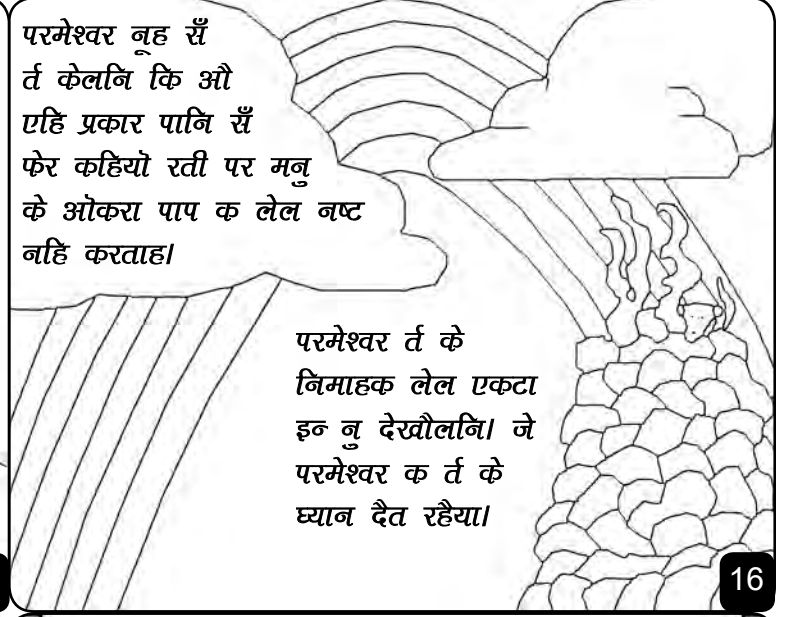 परमेश्वर नूह सँ
र्त केलनि कि औ
एहि प्रकार पानि सँ
फेर कहियॊ रती पर मनु
के ऒकरा पाप क लेल नष्ट
नहि करताह।
परमेश्वर र्त के
निमाहक लेल एकटा
इन्‍ नु देखौलनि। जे
परमेश्वर क र्त के
घ्यान दैत रहैया।
16